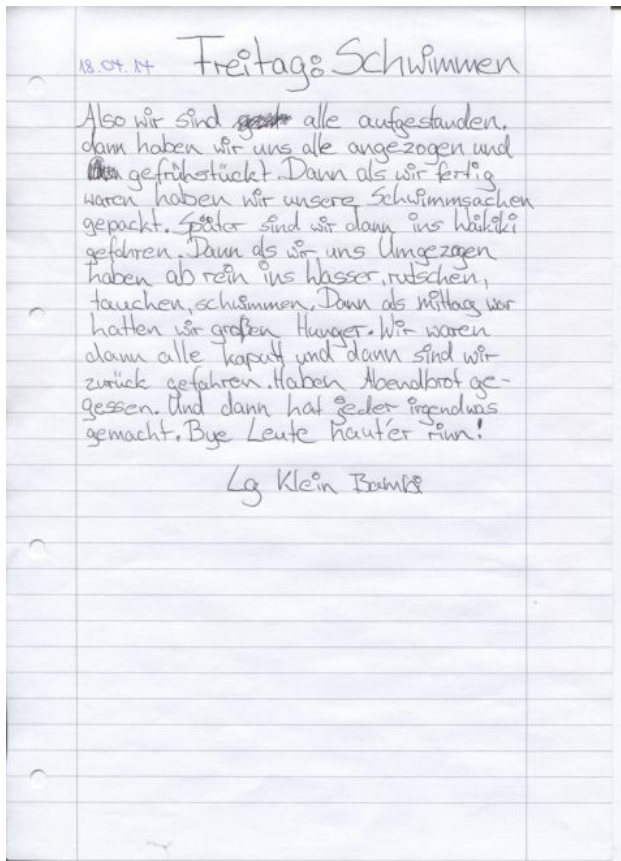 18.04.14 Freitag: Schwimmen
Also wir sind alle aufgestanden.
dann haben wir uns alle angezogen und
gefrühstückt. Dann als wir fertig
waren haben wir unsere Schwimmsachen
gepackt. Später sind wir dann ins Waikiki
gefahren. Dann als wir uns Umgezogen
haben ab rein ins Wasser, rutschen,
tauchen, schwimmen. Dann als mittag war
hatten wir großen Hunger. Wir waren
dann alle kaputt und dann sind wir
zurück gefahren. Haben Abendbrot ge-
gessen. Und dann hat jeder irgendwas
gemacht. Bye Leute haut'er rinn!
Lg Klein Bambi